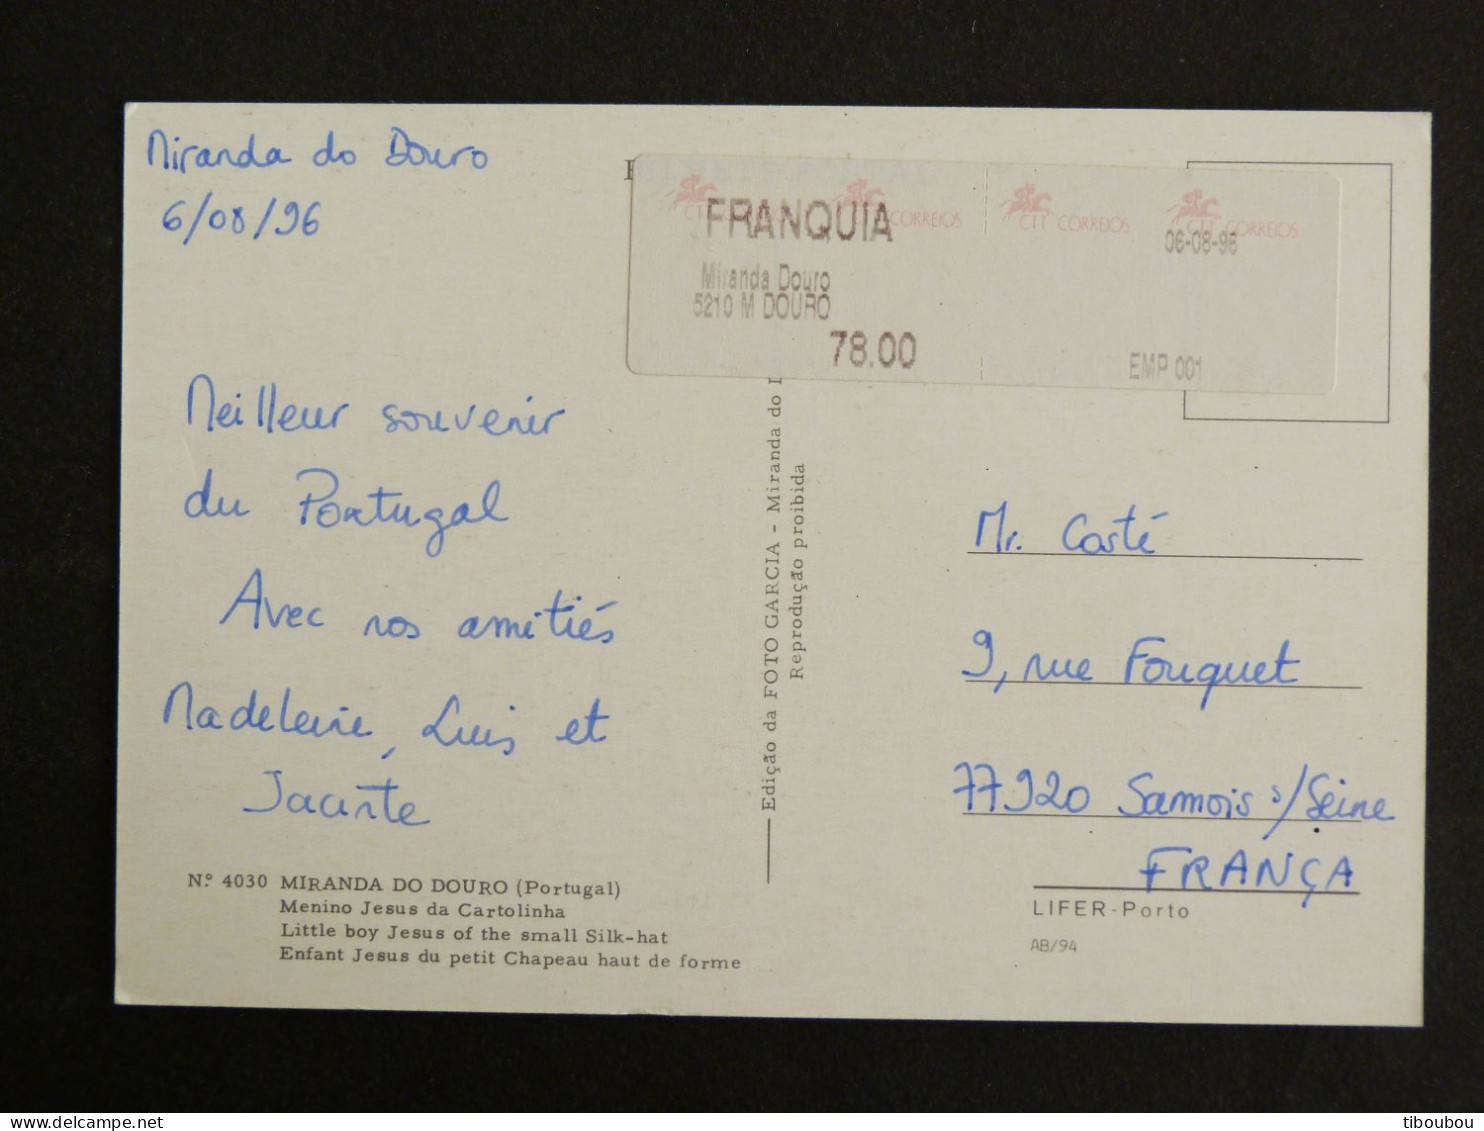 Miranda do Douro
6/08/96
Meilleur souvenir
du Portugal
Avec nos amitiés
Madeleine, Luis et
Jacinte
Nº 4030 MIRANDA DO DOURO (Portugal)
Menino Jesus da Cartolinha
Little boy Jesus of the small Silk-hat
Enfant Jesus du petit Chapeau haut de forme
Edição da FOTO GARCIA - Miranda do
Reprodução proibida
CTT CORREIOS CTT CORREIOS
FRANQUIA
06-08-96
Miranda Douro
5210 M DOURO
78.00
EMP 001
Mr. Costé
9, rue Fouquet
77920 Samois s/Seine
FRANÇA
LIFER-Porto
AB/94
tiboubou